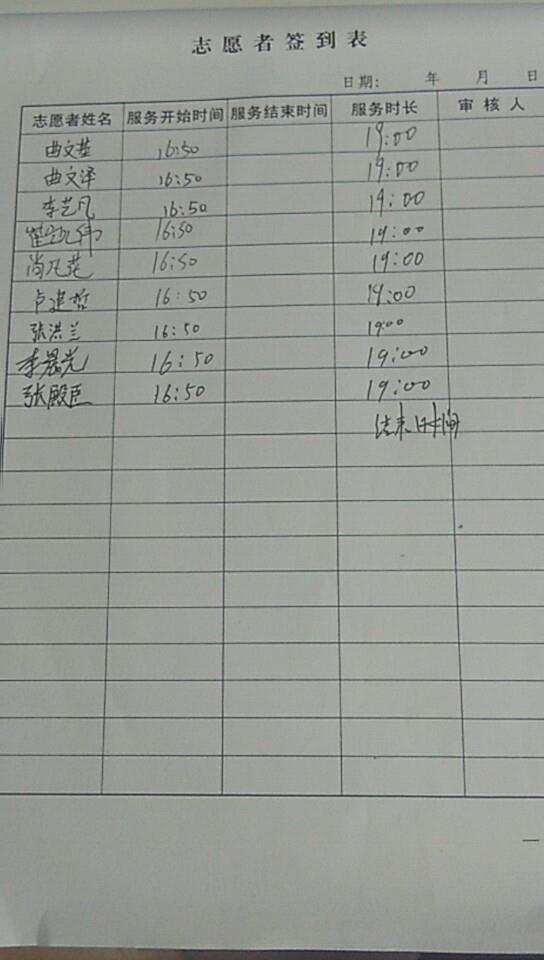 志愿者签到表
日期: 年 月 日
志愿者姓名 服务开始时间 服务结束时间 服务时长 审核人
曲文基 16:50 19:00
曲文泽 16:50 19:00
李艺凡 16:50 19:00
崔凯伟 16:50 19:00
尚凡茫 16:50 19:00
卢建哲 16:50 19:00
张洪兰 16:50 19:00
李晨光 16:50 19:00
张殿臣 16:50 19:00
结束时间